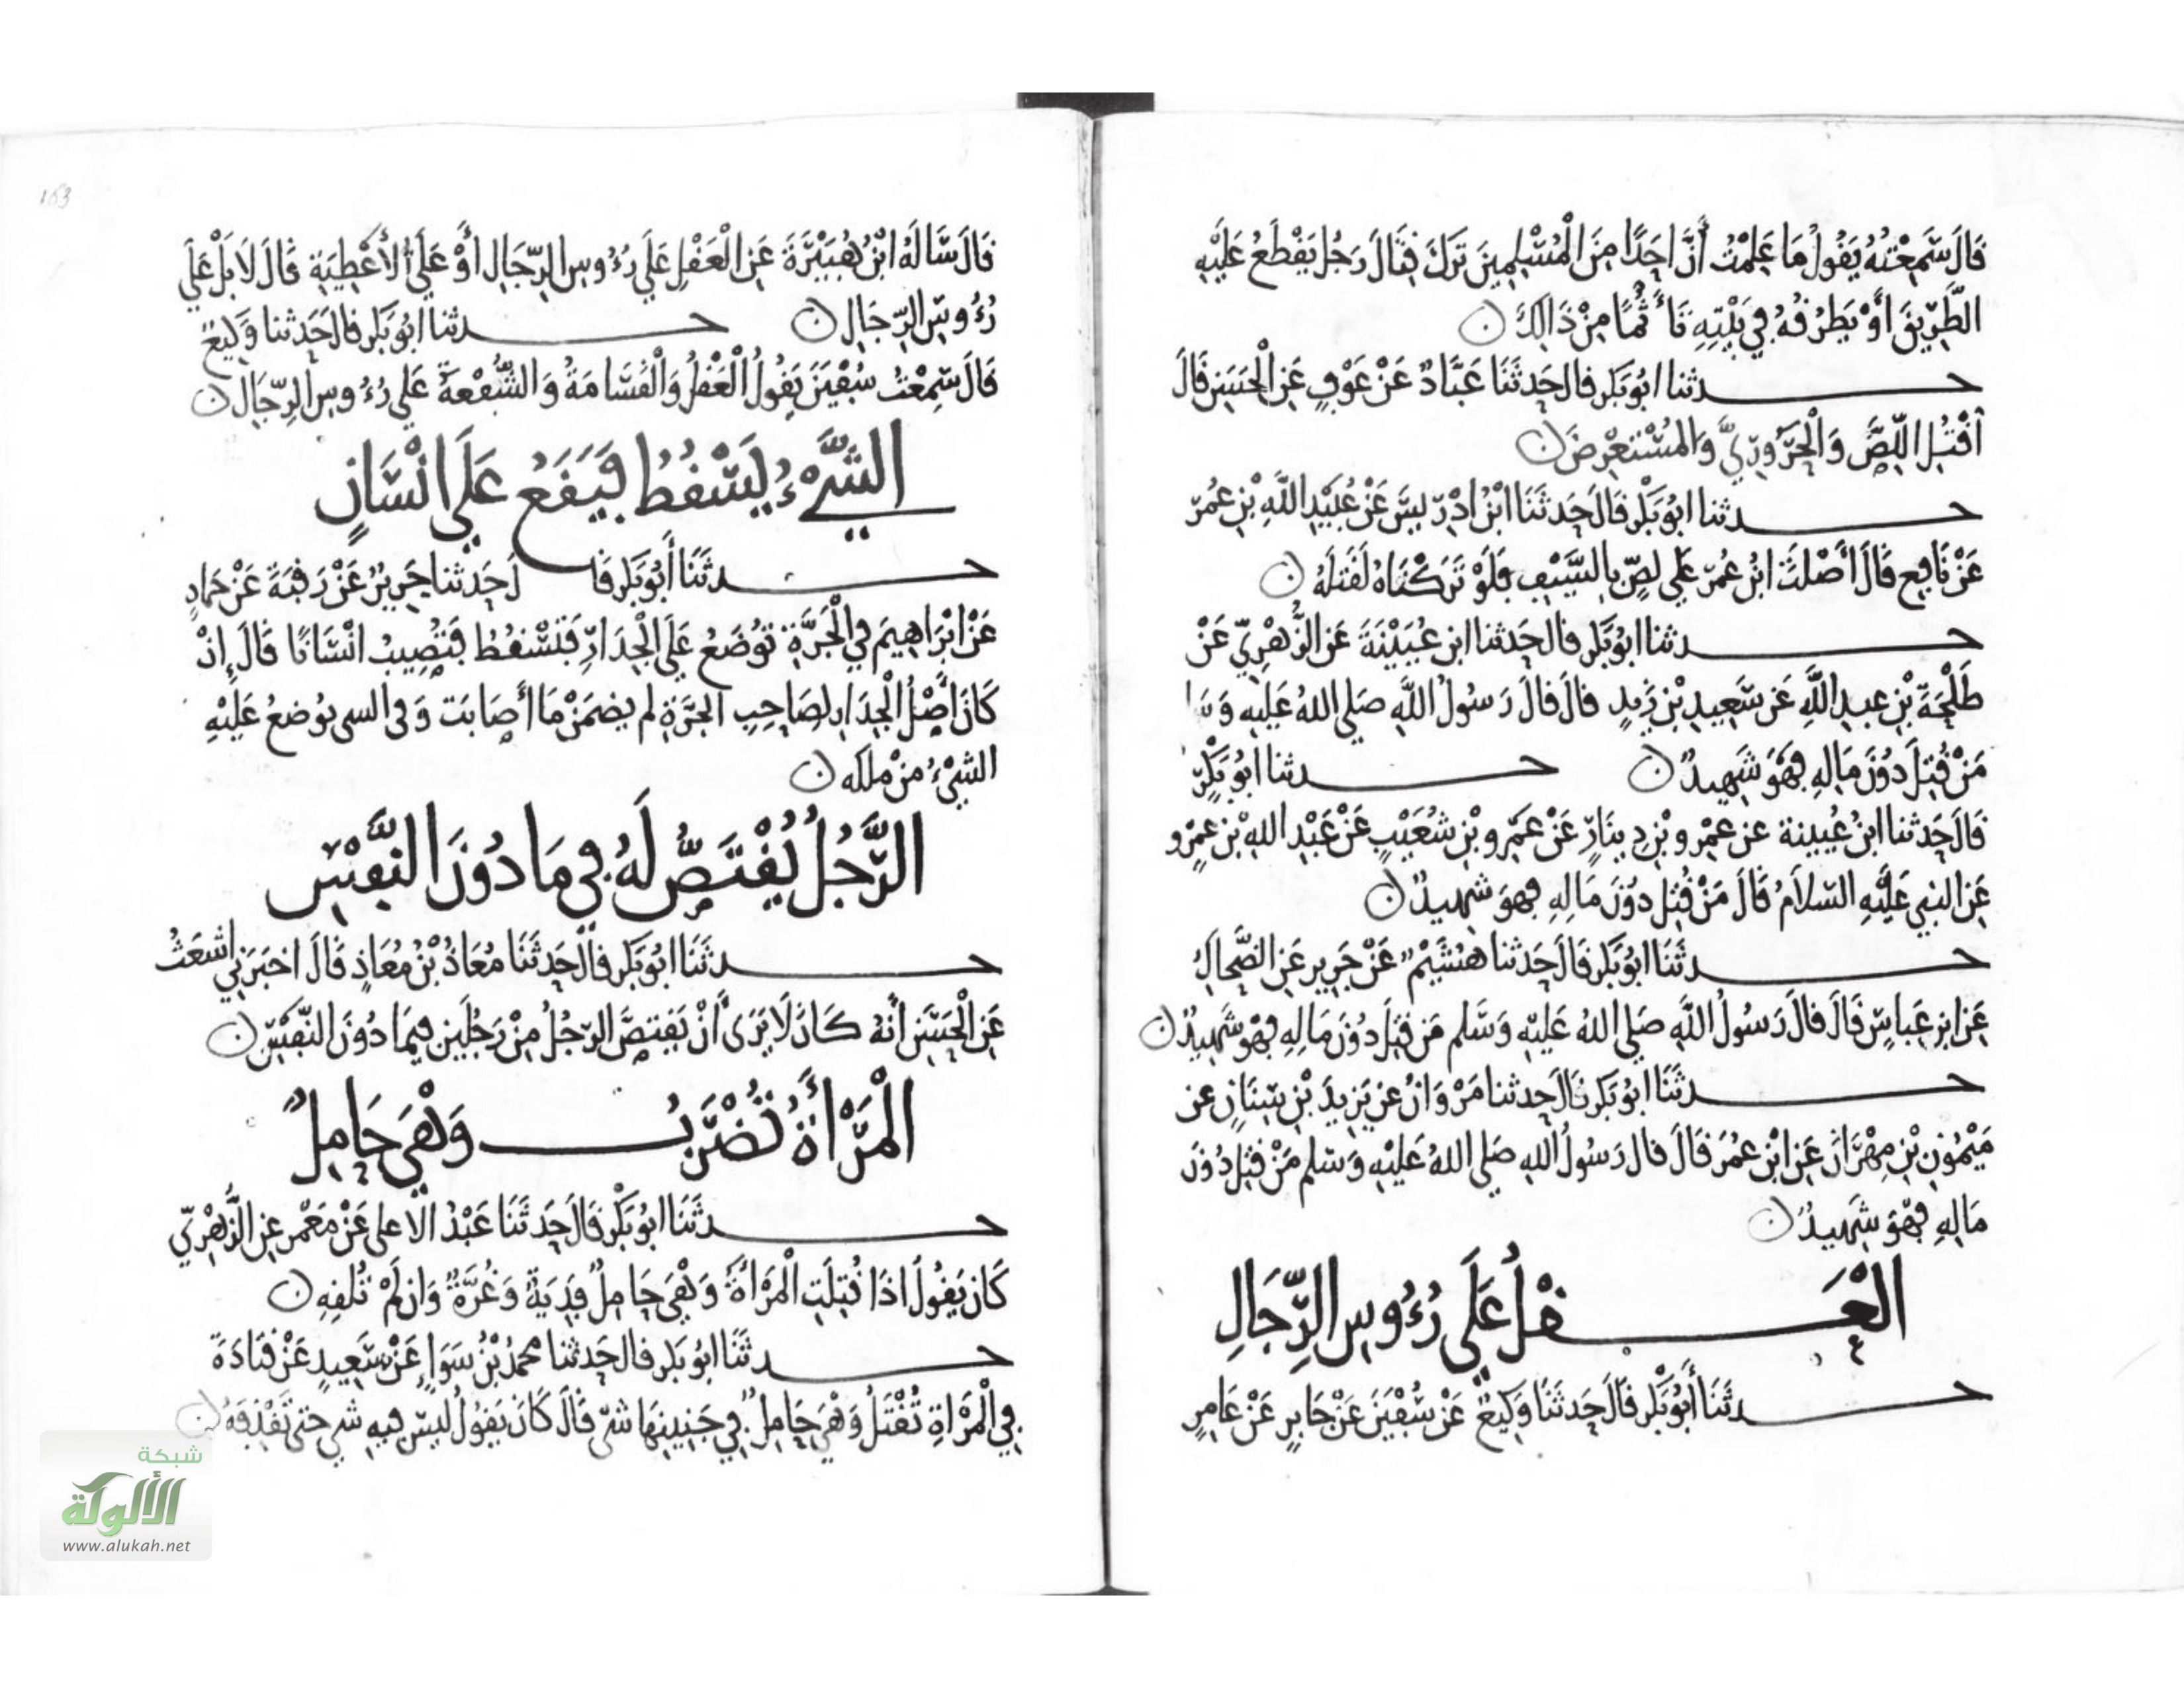 قَالَ سَمِعْتُهُ يَقُولُ مَا عَلِمْتُ أَنَّ احَدًا مِنَ الْمُسْلِمِينَ تَرَكَ قِتَالَ رَجُل يَقْطَعُ عَلَيْهِ
الطَّرِيقَ أَوْ يَطْرُقُهُ فِي بَيْتِهِ تَأَثُّمًا مِنْ ذَالِكَ
حدثنا ابُو بَكر قال حَدثَنَا عَبَّادٌ عَنْ عَوْفٍ عَنِ الْحَسَنِ قَالَ
اقْتُلِ اللِّصَّ وَالْحَرُورِيَّ وَالمُسْتَعْرِضَ
حدثنا ابُو بَكْر قَالَ حَدثَنَا ابْنُ ادْرِيسَ عَنْ عُبَيْدِ اللَّهِ بْنِ عُمَرَ
عَنْ نَافِعٍ قَالَ أَصْلَتَ ابْنُ عُمَرَ عَلَى لِصٍّ بِالسَّيْفِ فَلَوْ تَرَكْنَاهُ لَقَتَلَهُ
حدثنا ابُو بَكر قال حَدثنا ابن عُيَيْنَةَ عَنِ الزُّهْرِيِّ عَنْ
طَلْحَةَ بْنِ عبدِ اللَّهِ عَن سَعِيدِ بْنِ زَيدٍ قالَ قالَ رَسُولُ اللَّهِ صَلى اللهُ عَلَيهِ وَسَلم
مَنْ قُتِلَ دُونَ مَالِهِ فَهُوَ شَهِيدٌ حدثنا ابُو بَكْرٍ
قَالَ حَدثنا ابنُ عُيينة عن عمْرو بْنِ دِينَارٍ عَنْ عَمْرو بْنِ شُعَيْبٍ عَنْ عَبْدِ اللهِ بْنِ عمْرٍو
عَنِ النبِي عَلَيْهِ السّلاَمُ قَالَ مَنْ قُتِل دُونَ مَالِهِ فهوَ شهِيدٌ
حدثَنَا ابُو بَكر قَالَ حَدثنا هُشَيْمٌ عَنْ جَرِيرٍ عَنِ الضَّحاكِ
عَنِ ابن عَباسٍ قَالَ قالَ رَسُولُ اللَّهِ صَلى اللهُ عَلَيْهِ وَسَلم مَن قُتِلَ دُونَ مَالِهِ فهْوَ شَهِيدٌ
حدثَنَا ابُو بَكر قَالَ حَدثنا مَرْوَانُ عن يَزِيدَ بْنِ سِنَانٍ عن
مَيْمُونِ بْنِ مِهْرَانَ عَنِ ابْنِ عُمَرَ قَالَ قال رَسُولُ اللهِ صَلى اللهُ عَلَيْهِ وَسَلم مَنْ قُتِلَ دُونَ
مَالِهِ فَهْوَ شَهِيدٌ
الْعَقْلُ عَلَى رُءُوسِ الرِّجَالِ
حدثَنَا أَبُو بَكْر قَالَ حَدثَنَا وَكِيعٌ عَنْ سُفْيَنَ عَنْ جَابِرٍ عَنْ عَامِرٍ
قَالَ سَالَهُ ابْنُ هُبَيْرَةَ عَنِ الْعَقْلِ عَلَى رُءُوسِ الرِّجَالِ أَوْ عَلَى الأَعْطِيَةِ قَالَ لاَ بَلْ عَلَى
رُءُوسِ الرِّجَالِ حدثنا ابُو بَكر قال حَدثنا وَكِيعٌ
قَالَ سَمِعْتُ سُفْيَنَ يَقُولُ الْعَقْلُ وَالْقَسَامَةُ وَالشُّفْعَةُ عَلَى رُءُوسِ الرِّجَالِ
الشَّيْءُ يَسْقُطُ فَيَقَعُ عَلَى انْسَانٍ
حدثَنَا أَبُو بَكر قَالَ حَدثنا جَرِيرٌ عَنْ رَقَبَةَ عَنْ حَمادٍ
عَنْ ابْرَاهِيمَ فِي الْجَرَّةِ تُوضَعُ عَلَى الْجِدَارِ فَتَسْقُطُ فَتُصِيبُ انْسَانًا قَالَ إِنْ
كَانَ أَصْلُ الْجِدَارِ لِصَاحِبِ الجَرَّةِ لم يضمَنْ مَا أَصَابَت وَفى السى يوُضعُ عَلَيْهِ
الشيْءُ مِنْ ملكه
الرَّجُلُ يُقْتَصُّ لَهُ فِي مَا دُونَ النَّفْسِ
حدثَنَا ابُو بَكر قالَ حَدثَنَا مُعَاذُ بْنُ مُعَاذٍ قَالَ اخبَرَنِي اشعَثُ
عَنِ الْحَسَنِ أَنَّهُ كَانَ لَا يَرَى أَنْ يَقتصَّ الرّجُلُ مِنْ رَجُلَينِ فِيمَا دُونَ النَّفسِ
الْمَرْأَةُ تُضْرَبُ وَهْيَ حَامِلٌ
حدثَنَا ابُو بَكْر قَالَ حَدثَنَا عَبْدُ الاعلى عَنْ مَعْمر عنِ الزُّهْرِيِّ
كَانَ يَقُولُ اذَا قُتِلَتِ الْمَرْأَةُ وَهْيَ حَامِلٌ فَدِيَةٌ وَغُرَّةٌ وَإِن لَمْ تُلقِهِ
حدثَنَا ابُو بَكر قال حَدثنا محمدُ بْنُ سَوَاءٍ عَنْ سَعِيدٍ عَنْ قتَادَةَ
فِي الْمَرْأَةِ تُقْتَلُ وَهْيَ حَامِلٌ فِي جَنِينِهَا شَىْ قَالَ كَانَ يَقُولُ لَيسَ فيهِ شىْ حَتى تَقْذِفَهُ
شبكة
الألوكة
www.alukah.net